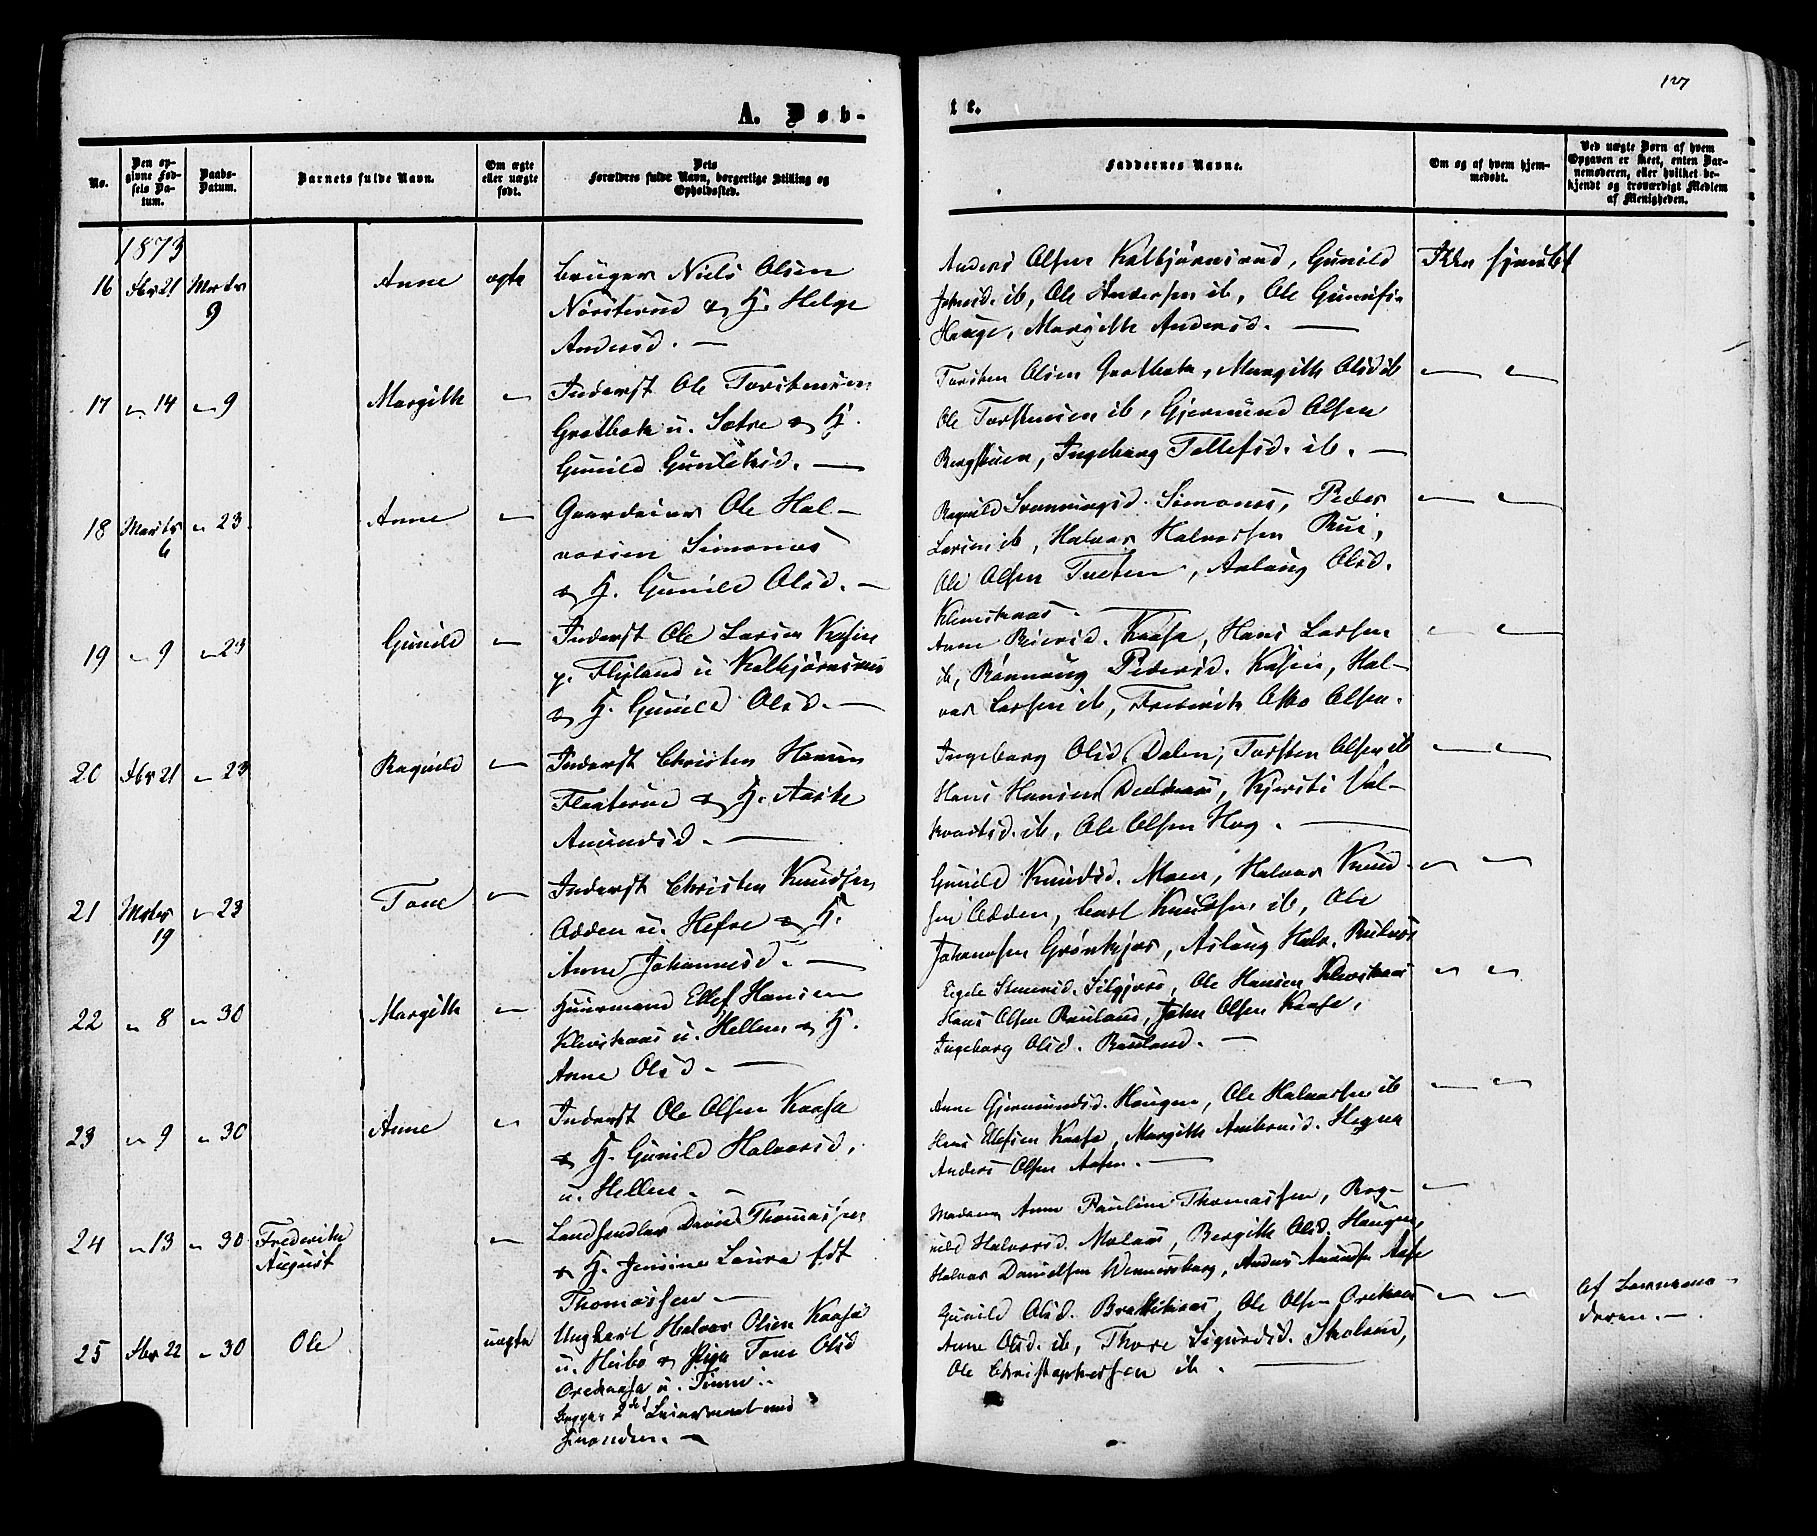 127
A. Døb-
te.
No.
Den op-
givne Fød-
sels Da-
tum.
Daabs-
Datum.
Barnets fulde Navn.
Om ægte
eller uægte
født.
Dets
Forældres fulde Navn, borgerlige Stilling og
Opholdssted.
Faddernes Navne.
Om og af hvem hjem-
medøbt.
Ved uægte Børn af hvem
Opgaven er skeet, enten Bar-
nemoderen, eller hvilket be-
kjendt og troværdigt Medlem
af Menigheden.
1873
16 Fbr 21 Marts 9 Anne ægte
Bruger Niels Olsen
Nørsterud & H. Helge
Andersd. —
Anders Olsen Kalbjørnsrud, Gunild
Johnsd. ib, Ole Andersen ib, Ole
Hauge, Margith Andersd. —
Ikke hjemdbt
17 " 14 " 9 Margith "
Inderst Ole Torstensen
Grotbæk u. Sætre & H.
Gunild Gunleiksd. —
Torsten Olsen Grotbæk, Margith Olsd ib
Ole Torstensen ib, Gjermund Olsen
Bergstuen, Ingeborg Tollefsd. ib. —
" "
18 Marts 6 " 23 Anne "
Gaardeier Ole Hal-
vorsen Simones
& H. Gunild Olsd. —
Ragnild Svenningsd. Simones, Peder
Larsen ib, Halvor Halvorsen Rui,
Ole Olsen Tveten, Aslaug Olsd.
Klevstaaas —
" "
19 " 9 " 23 Gunild "
Inderst Ole Larsen Kasin
p. Flisland u Kalbjørnsrud
& H. Gunild Olsd. —
Anne Kaasa, Hans Larsen
ib, Rønnaug Pedersd. Kasin, Hal-
vor Larsen ib, Frederik Otto Olsen.
" "
20 Fbr 21 " 23 Ragnild "
Inderst Christen Hansen
Flaaterud & H. Aaste
Amundsd. —
Ingeborg Olsd. Dalen, Torsten Olsen ib
Hans Hansen, Kjersti Val-
ib, Ole Olsen Hag. —
" "
21 Marts 19 " 23 Tone "
Inderst Christen Knudsen
Odden u. Hefre & H.
Anne Johannesd. —
Gunild Knudsd. Moen, Halvor Knud-
sen Odden, Carl Knudsen ib, Ole
Johannesen Grønkjær, Aslaug Halv.
" "
22 " 8 " 30 Margith "
Huusmand Ellef Hansen
Klevstaaas u. Hellem & H.
Anne Olsd. —
Ole Hansen Klevstaaas
Hans Olsen Rauland, John Olsen Kaasa,
Ingeborg Olsd. Rauland. —
" "
23 " 9 " 30 Anne "
Inderst Ole Olsen Kaasa
& H. Gunild Halvorsd.
u. Hellem. —
Anne Gjermundsd. Haugen, Ole Halvorsen ib
Hans Ellefsen Kaasa, Margith Andersd. Hegna
Anders Olsen Aasen. —
" "
24 " 13 " 30 Frederik
August "
Landhandler David Thomassen
& H. Jensine Laura født
Thomassen —
Madam Anne Pauline Thomassen, Rag-
nild Halvorsd. Moløas, Bergith Olsd. Haugen,
Halvor Danielsen Wennersborg, Anders Amundsen Aase
"
25 Fbr 22 " 30 Ole uægte
Ungkarl Halvor Olsen Kaasa
u. Heibø & Pige Tone Olsd
Oredaasa u. Tinne.
Begges 2det Leiermaal med
hinanden. —
Gunild Olsd., Ole Olsen
Anne Olsd. ib, Thore Sigurdsd. Skoland,
Ole Christophersen ib. —
" "
Af Barnemo-
deren. —